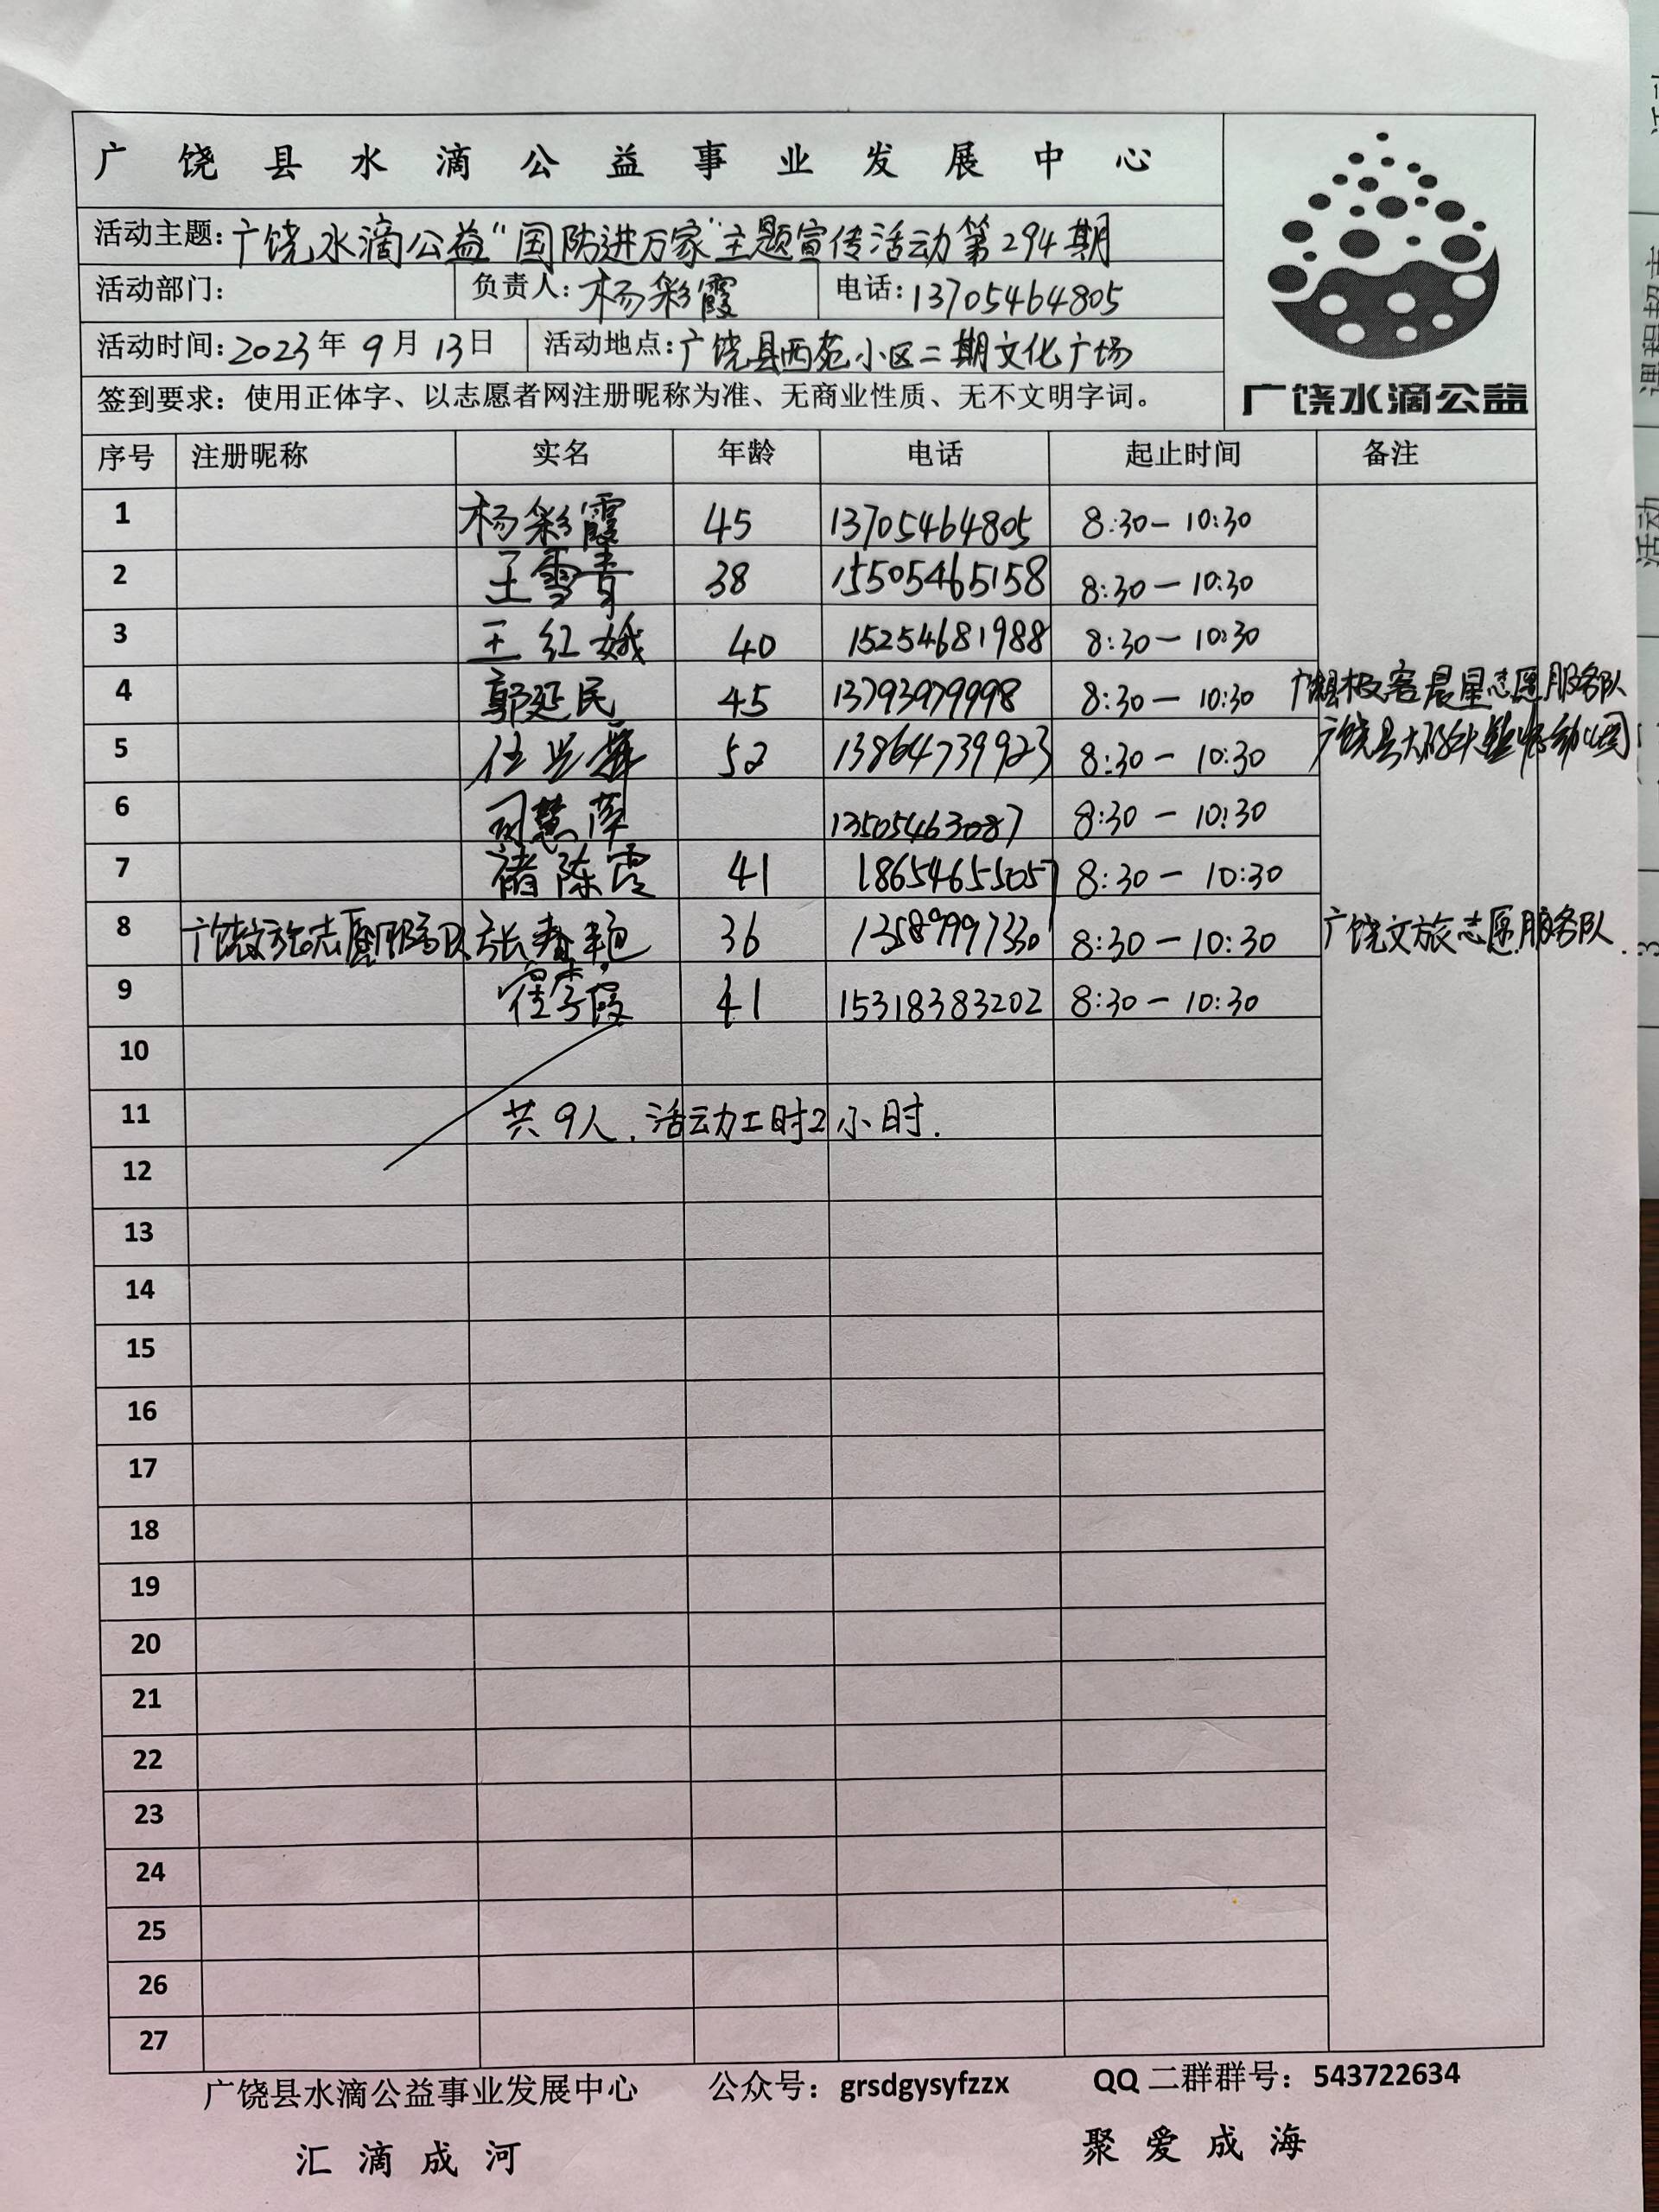 广饶县水滴公益事业发展中心
活动主题:广饶水滴公益"国防进万家"主题宣传活动第294期
活动部门: 负责人:杨彩霞 电话:13705464805
活动时间:2023年9月13日 活动地点:广饶县西苑小区二期文化广场
签到要求:使用正体字、以志愿者网注册昵称为准、无商业性质、无不文明字词。
广饶水滴公益
序号 注册昵称 实名 年龄 电话 起止时间 备注
1 杨彩霞 45 13705464805 8:30-10:30
2 王雪青 38 15505465158 8:30-10:30
3 王红娥 40 15254681988 8:30-10:30
4 郭延民 45 13793979998 8:30-10:30 广饶县极客晨星志愿服务队
5 任兰 52 13864739923 8:30-10:30 广饶县大码头 幼儿园
6 司慧萍 13505463087 8:30-10:30
7 褚陈霞 41 18654655057 8:30-10:30
8 广饶文旅志愿服务队 张春艳 36 13589997330 8:30-10:30 广饶文旅志愿服务队
9 霞 41 15318383202 8:30-10:30
10
11 共9人,活动工时2小时.
12
13
14
15
16
17
18
19
20
21
22
23
24
25
26
27
广饶县水滴公益事业发展中心 公众号:grsdgysyfzzx QQ二群群号:543722634
汇滴成河 聚爱成海